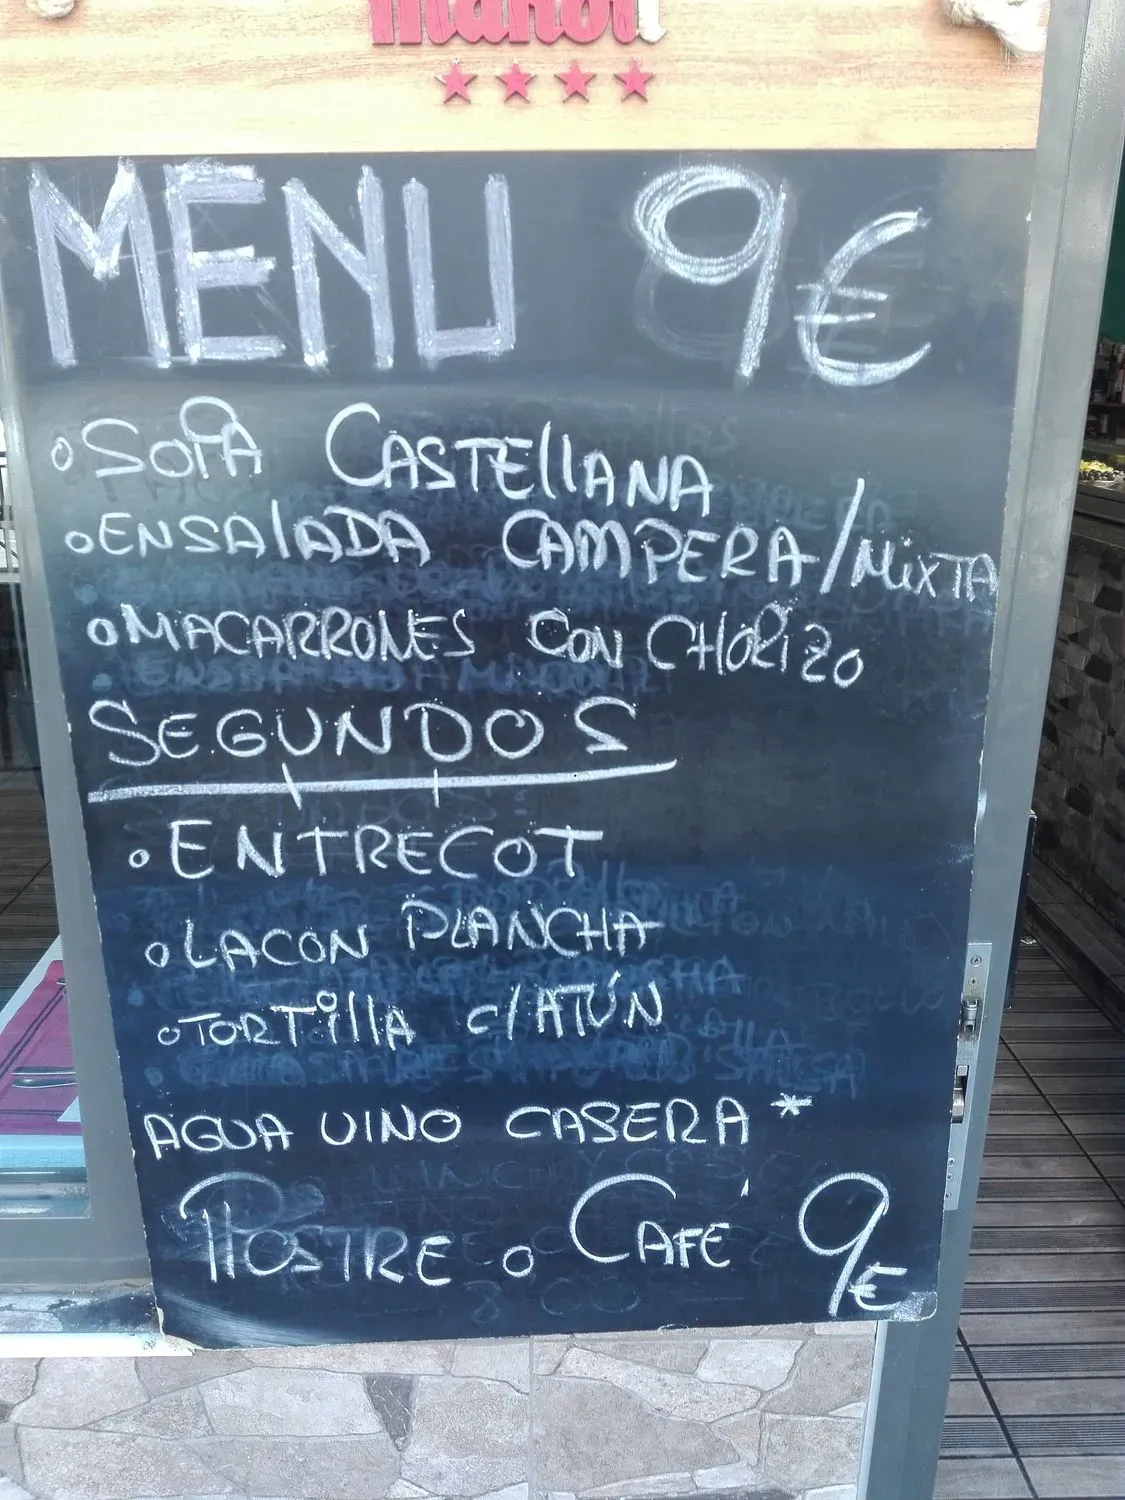 MENU 9€
SOPA CASTELLANA
ENSALADA CAMPERA/MIXTA
MACARRONES CON CHORIZO
SEGUNDOS
ENTRECOT
LACON PLANCHA
TORTILLA C/ATÚN
AGUA VINO CASERA *
POSTRE O CAFÉ 9€